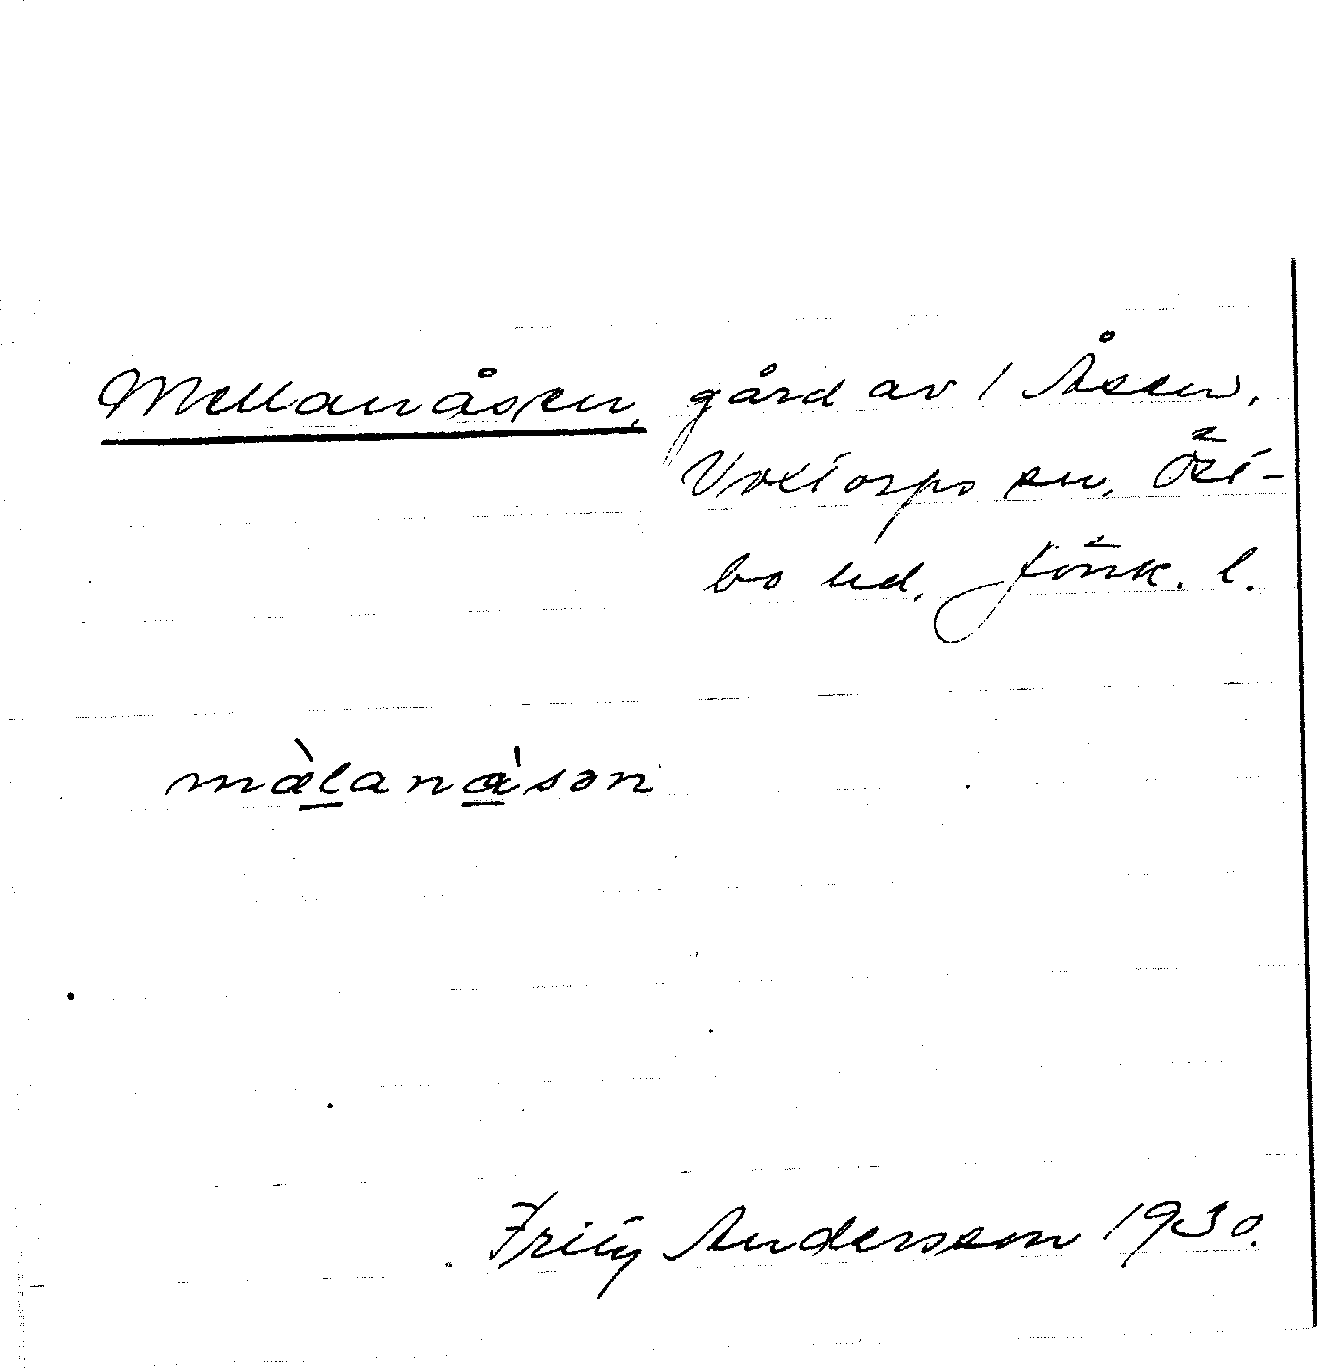 Mellanåsen, gård av 1 Åsen,
Voxtorps sn, Öst-
bo hd, Jönk. l.
mæ̀lanåsən
Fritz Andersson 1930.